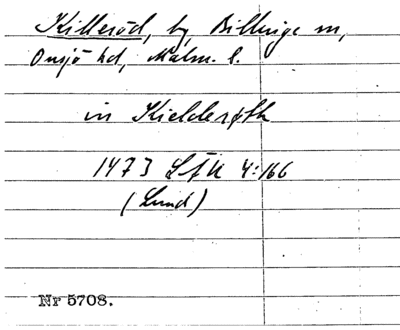 Killeröd, by Billinge sn,
Onsjö hd, Malm. l.
in Kieldersøth
1473 LÄU 4:166
(Lund)
Nr 5708.